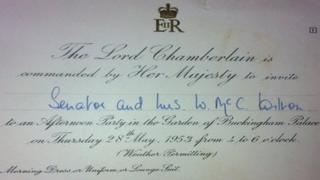 EIIR
The Lord Chamberlain is
commanded by Her Majesty to invite
Senator and Mrs. W. McC.
to an Afternoon Party in the Garden of Buckingham Palace
on Thursday 28th May, 1953 from 4 to 6 o'clock.
(Weather Permitting)
Morning Dress or Uniform or Lounge Suit.